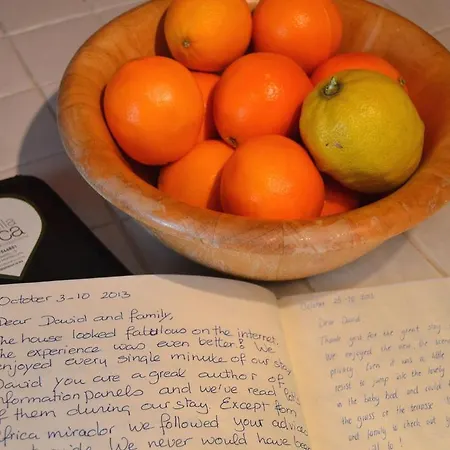 la
ca
October 3-10 2013
Dear Dawid and family,
he house looked fabulous on the internet,
the experience was even better! We
enjoyed every single minute of our stay.
Dawid you are a great author of
information panels and we've read
f them during our stay. Except from
frica mirador we followed your advices
We never would have been
Dear David
Thank you for the great stay
We enjoyed the area, the
privacy. Even it was a little
to jump into the lovely
in the baby bed and could
the of the terrasse
and family to check out